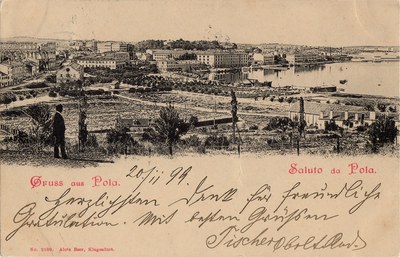 Gruss aus Pola.
Saluto da Pola.
20/11 99
Herzlichsten Dank für freundliche
Gratulation. Mit besten Grüßen
Fischer Oberst